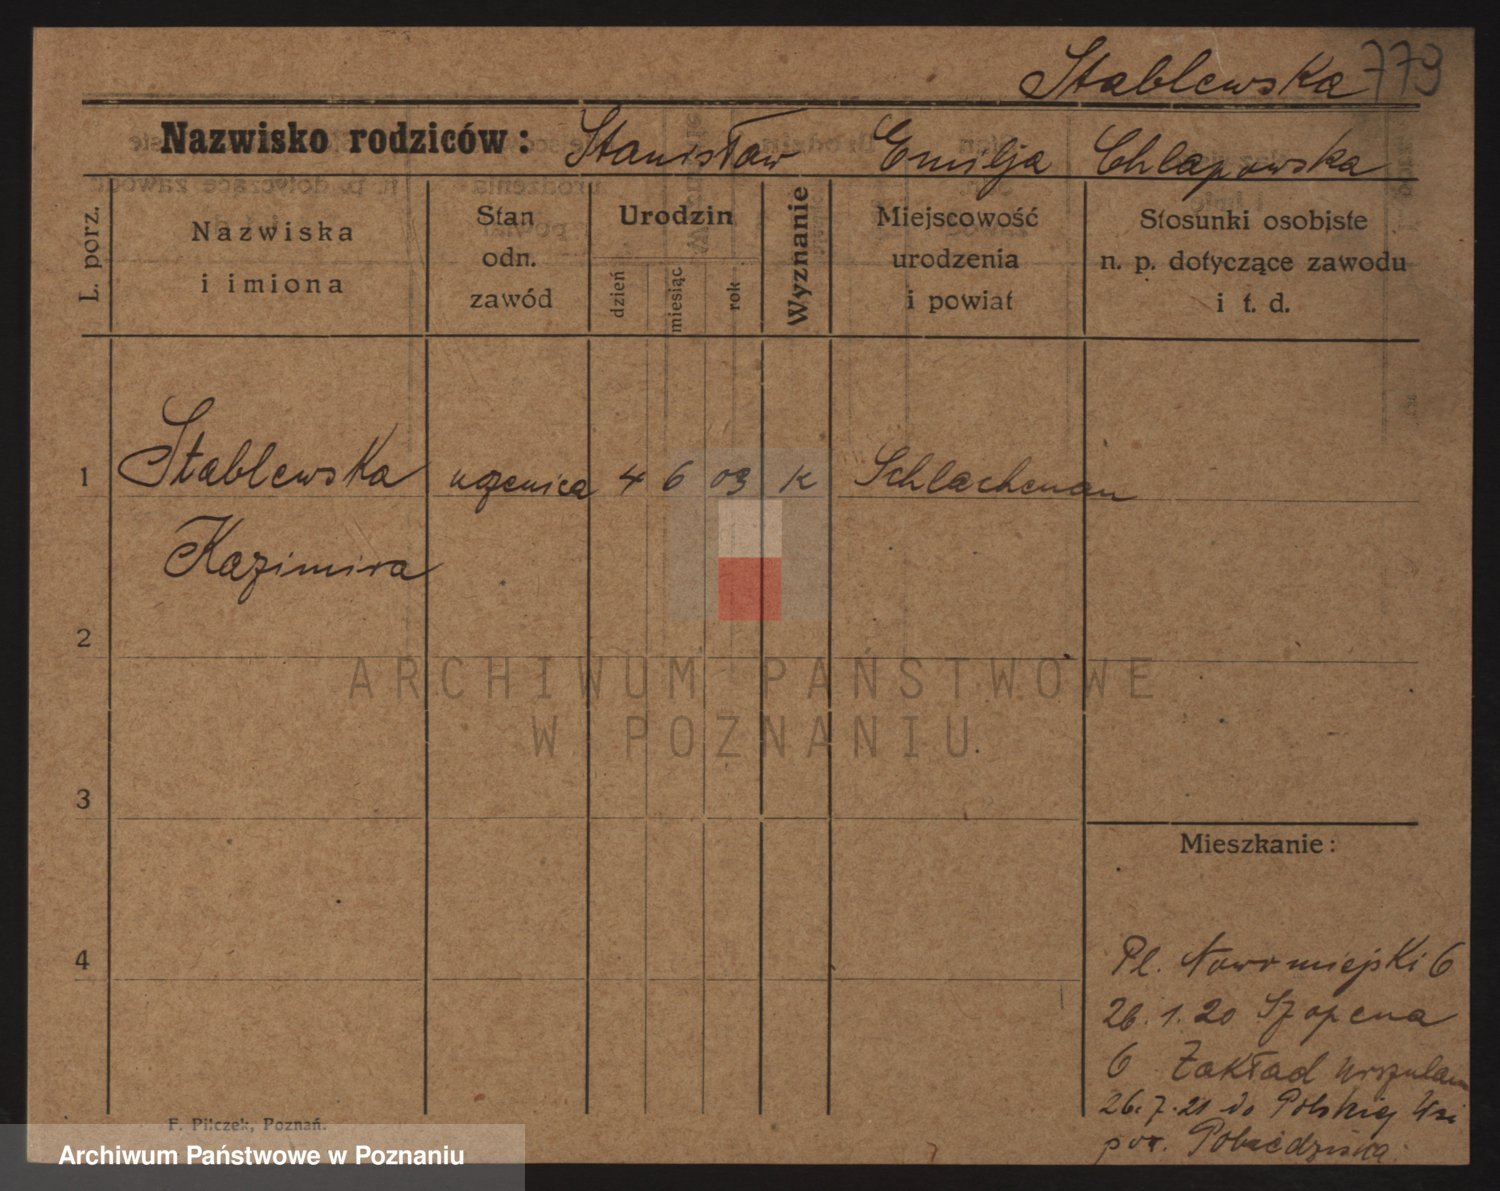 Stablewska 779
Nazwisko rodziców: Stanisław Emilja Chłapowska
L. porz.
Nazwiska
i imiona
Stan
odn.
zawód
Urodzin
dzień
miesiąc
rok
Wyznanie
Miejscowość
urodzenia
i powiat
Stosunki osobiste
n. p. dotyczące zawodu
i t. d.
1 Stablewska uczenica 4 6 03 k
Kazimira
2
3
4
ARCHIWUM PAŃSTWOWE
W POZNANIU
Mieszkanie:
Pl. Nowomiejski 6
26.1.20 Szopena
6 Zakład Urszulan
26.7.21 do Polskiej Wsi
pow. Pobiedziska
F. Pilczek, Poznań.
Archiwum Państwowe w Poznaniu